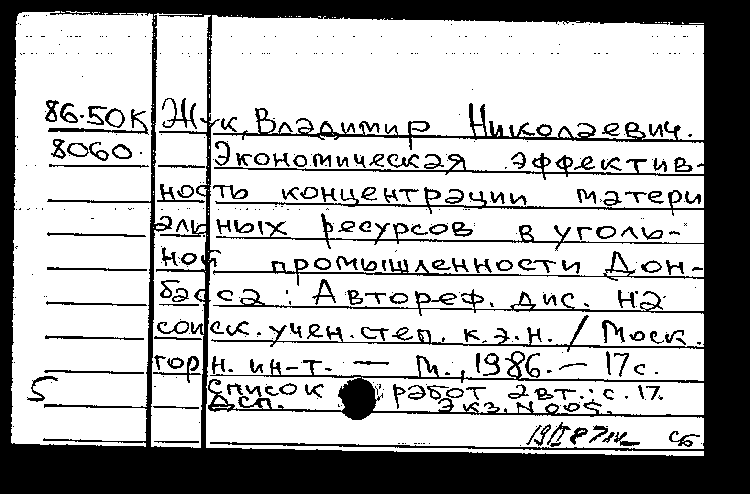 86-50К Жук, Владимир Николаевич.
8060. Экономическая эффектив-
ность концентрации матери
альных ресурсов в уголь-
ной промышленности Дон-
басса : Автореф. дис. на
соиск. учен. степ. к.э.н. / Моск.
горн. ин-т. — М., 1986. — 17 с.
5 Список работ авт.: с. 17.
ДСП. Экз. N 005.
сб.